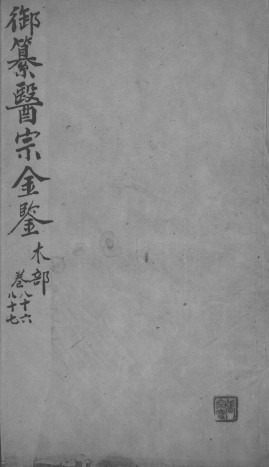 御纂醫宗金鑒
木部
卷八十六
八十七